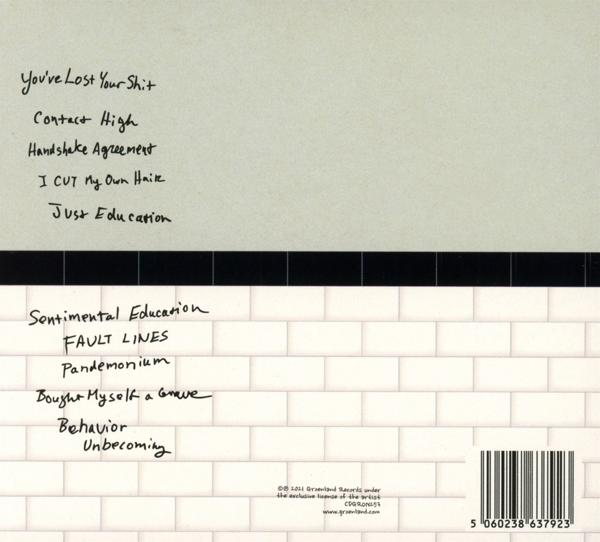 You've Lost Your Shit
Contact High
Handshake Agreement
I CUT My Own Hair
Just Education
Sentimental Education
FAULT LINES
Pandemonium
Bought Myself a Grave
Behavior
Unbecoming
©℗ 2021 Groenland Records under
the exclusive license of the artist
CDGRON257
www.groenland.com
5 060238 637923